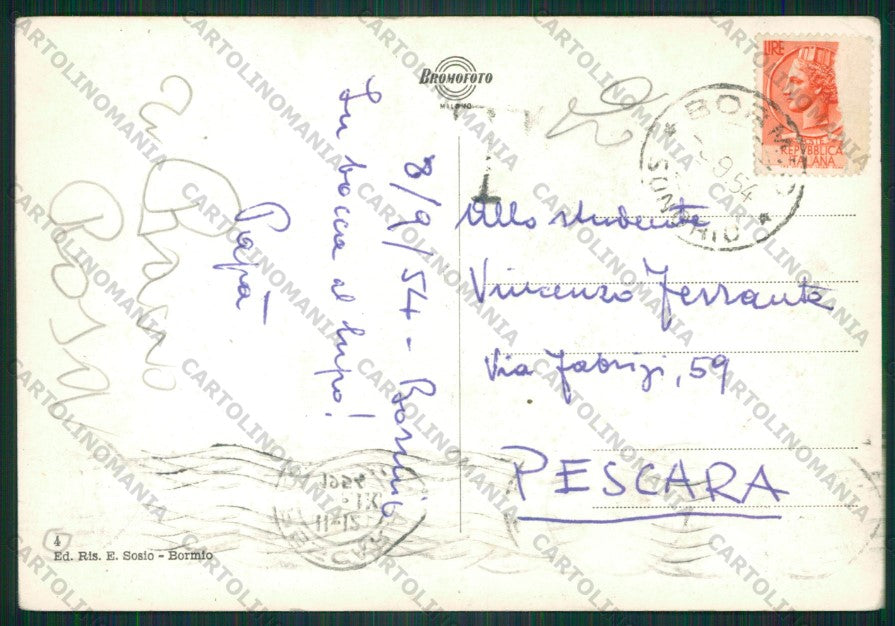 BROMOFOTO
MILANO
LIRE
REPUBBLICA
ITALIANA
BORMIO
9.54
SONDRIO
8/9/54 - Bormio
In bocca al lupo!
Papà
Allo studente
Vincenzo Ferrante
Via Fabrizi, 59
PESCARA
1954
11-12
4
Ed. Ris. E. Sosio - Bormio
CARTOLINOMANIA